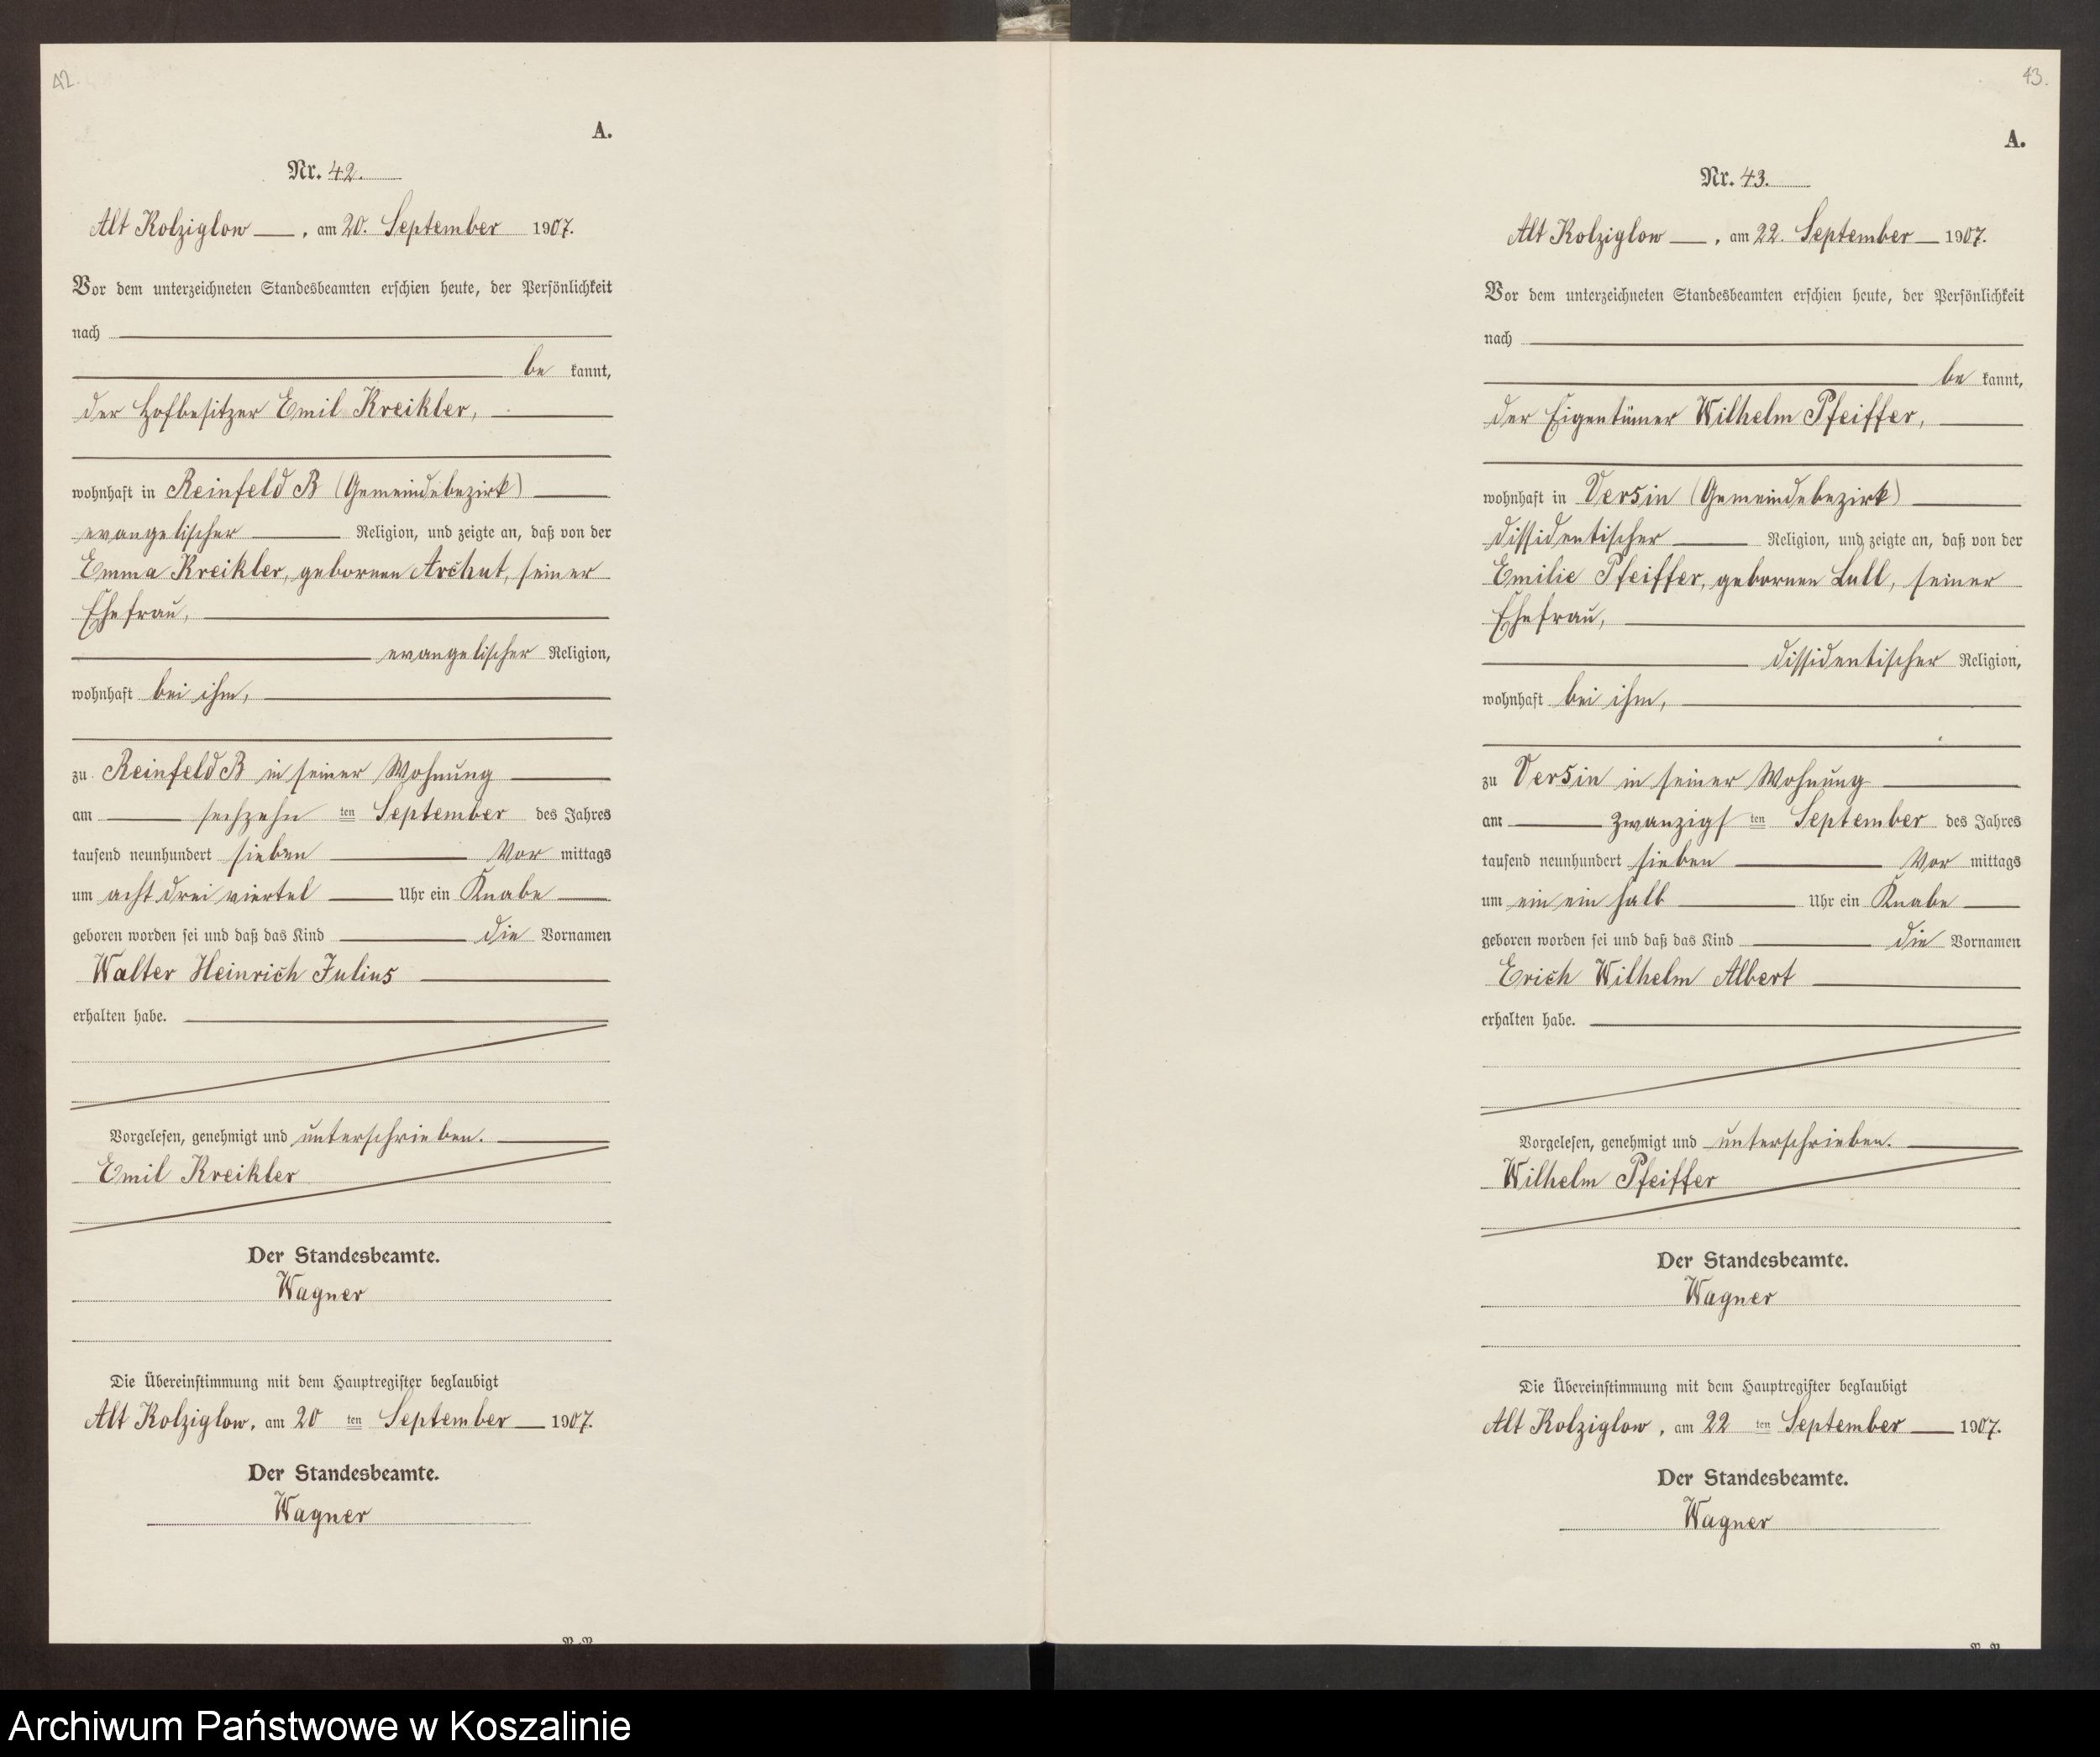 42.
A.
Nr. 42.
Alt Kolziglow, am 20. September 1907.
Vor dem unterzeichneten Standesbeamten erschien heute, der Persönlichkeit
nach
be kannt,
der Hofbesitzer Emil Kreikler,
wohnhaft in Reinfeld B (Gemeindebezirk)
evangelischer Religion, und zeigte an, daß von der
Emma Kreikler, gebornen Archut, seiner
Ehefrau,
evangelischer Religion,
wohnhaft bei ihm,
zu Reinfeld B in seiner Wohnung
am sechzehn ten September des Jahres
tausend neunhundert sieben Vor mittags
um acht drei viertel Uhr ein Knabe
geboren worden sei und daß das Kind die Vornamen
Walter Heinrich Julius
erhalten habe.
Vorgelesen, genehmigt und unterschrieben.
Emil Kreikler
Der Standesbeamte.
Wagner
Die Übereinstimmung mit dem Hauptregister beglaubigt
Alt Kolziglow, am 20 ten September 1907.
Der Standesbeamte.
Wagner
43.
A.
Nr. 43.
Alt Kolziglow, am 22. September 1907.
Vor dem unterzeichneten Standesbeamten erschien heute, der Persönlichkeit
nach
be kannt,
der Eigentümer Wilhelm Pfeiffer,
wohnhaft in Versin (Gemeindebezirk)
dissidentischer Religion, und zeigte an, daß von der
Emilie Pfeiffer, gebornen Lull, seiner
Ehefrau,
dissidentischer Religion,
wohnhaft bei ihm,
zu Versin in seiner Wohnung
am zwanzigs ten September des Jahres
tausend neunhundert sieben Vor mittags
um ein ein halb Uhr ein Knabe
geboren worden sei und daß das Kind die Vornamen
Erich Wilhelm Albert
erhalten habe.
Vorgelesen, genehmigt und unterschrieben.
Wilhelm Pfeiffer
Der Standesbeamte.
Wagner
Die Übereinstimmung mit dem Hauptregister beglaubigt
Alt Kolziglow, am 22 ten September 1907.
Der Standesbeamte.
Wagner
Archiwum Państwowe w Koszalinie